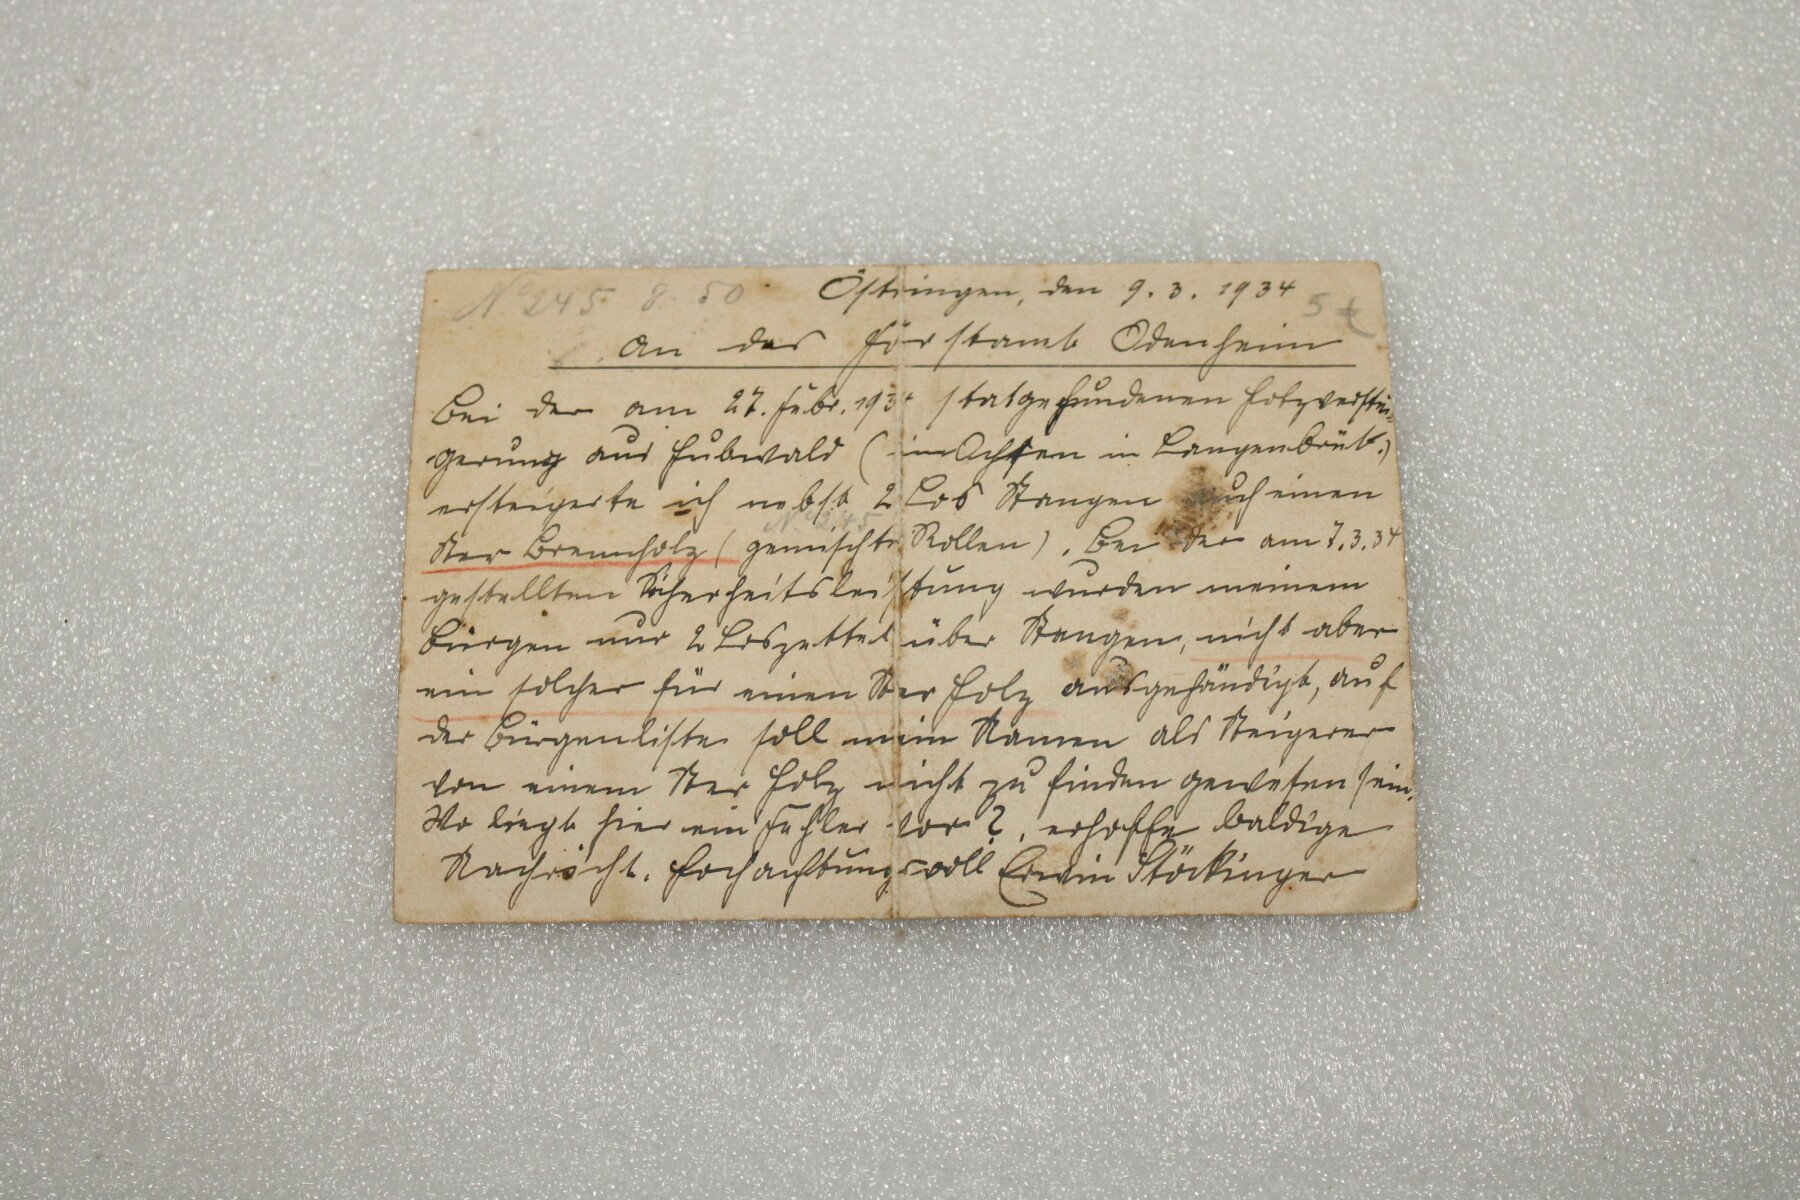 No 245 8.50 Östringen, den 9.3.1934
An das Forstamt Odenheim
Bei der am 27. Febr. 1934 statgefundenen Holzverstei-
gerung aus Hubwald (im Ochsen in Langenbrük.)
ersteigerte ich nebst 2 Los Stangen auch einen
No 245
Ster Brennholz (gemischte Rollen). Bei der am 7.3.34
gestellten Sicherheitsleistung wurden meinem
Bürgen nur 2 Loszettel über Stangen, nicht aber
ein solcher für einen Ster Holz ausgehändigt, auf
der Bürgenliste soll mein Namen als Steigerer
von einem Ster Holz nicht zu finden gewesen sein.
Wo liegt hier ein Fehler vor?, erhoffe baldige
Nachricht. Hochachtungsvoll Erwin Stöckinger